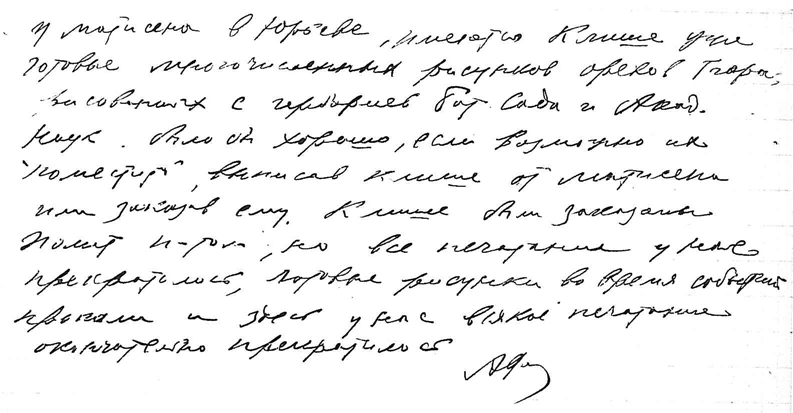 у Матисена в Юрьеве, имеются клише уже
готовые многочисленных рисунков орехов Trapa,
рисованных с гербариев Бот. Сада и Акад.
Наук. Было бы хорошо, если возможно их
"поместить", выписав клише от Матисена
или заказав ему. Клише были заказаны
Полит. И-том, но все печатание у нас
прекратилось, готовые рисунки во время событий
пропали и здесь у нас всякое печатание
окончательно прекратилось